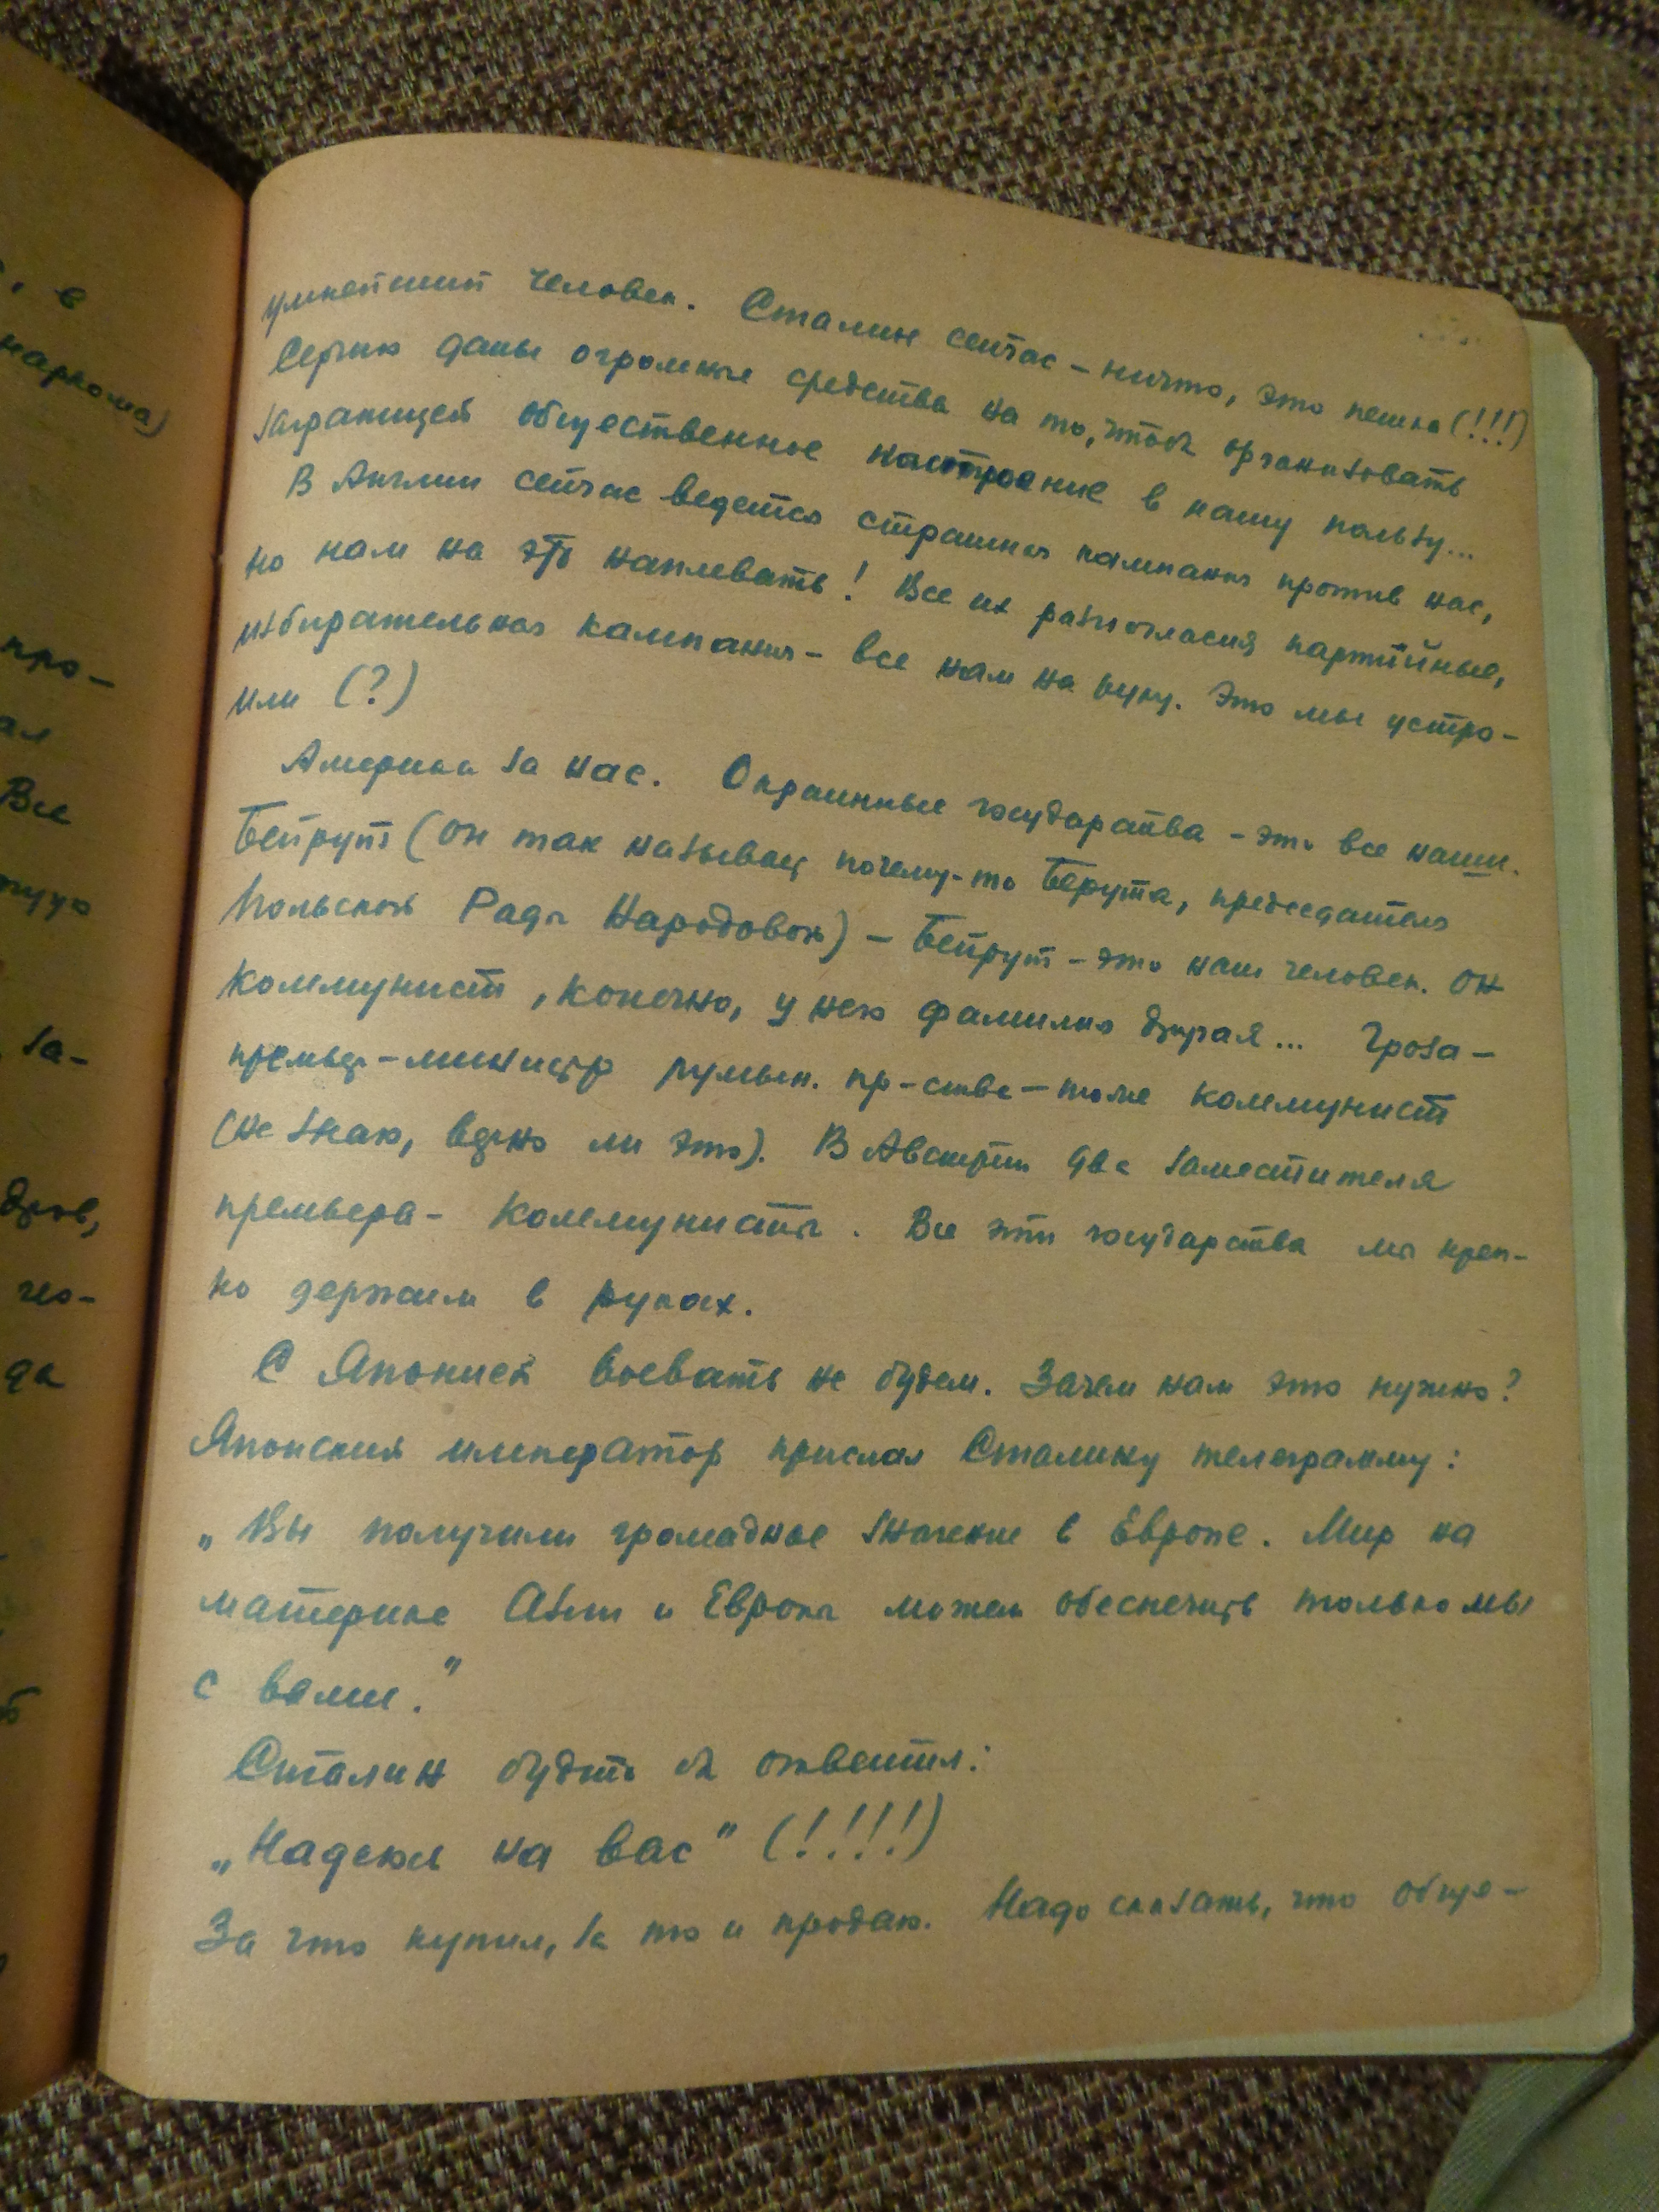 , в
наркома)
про-
Все
за-
гда
умнейший человек. Сталин сейчас – ничто, это пешка (!!!)
даны огромные средства на то, чтоб организовать
заграницей общественное настроение в нашу пользу...
В Англии сейчас ведется страшная кампания против нас,
но нам на это наплевать! Все их разногласия партийные,
избирательная кампания – все нам на руку. Это мы устро-
или (?)
Америка за нас. Окраинные государства – это все наши.
Бейрут (он так называет почему-то Берута, председателя
Польской Рады Народовой) – Бейрут – это наш человек. Он
коммунист, конечно, у него фамилия другая... Гроза –
премьер-министр румын. пр-ства – тоже коммунист
(не знаю, верно ли это). В Австрии два заместителя
премьера – коммунисты. Все эти государства мы креп-
ко держим в руках.
С Японией воевать не будем. Зачем нам это нужно?
Японский император прислал Сталину телеграмму:
„Вы получили громадное значение в Европе. Мир на
материке Азии и Европы можем обеспечить только мы
с вами."
Сталин будто бы ответил:
„Надеюсь на вас" (!!!!)
За что купил, за то и продаю. Надо сказать, что обще-